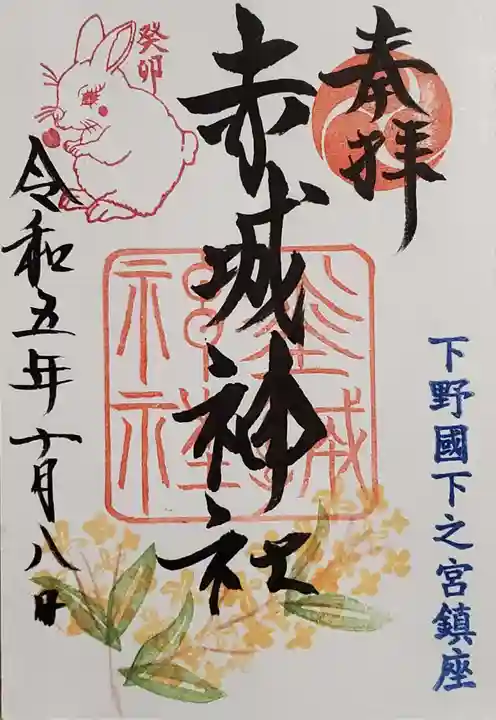 奉拝
下野國下之宮鎮座
赤城神社
赤城神社
癸卯
令和五年十月八日